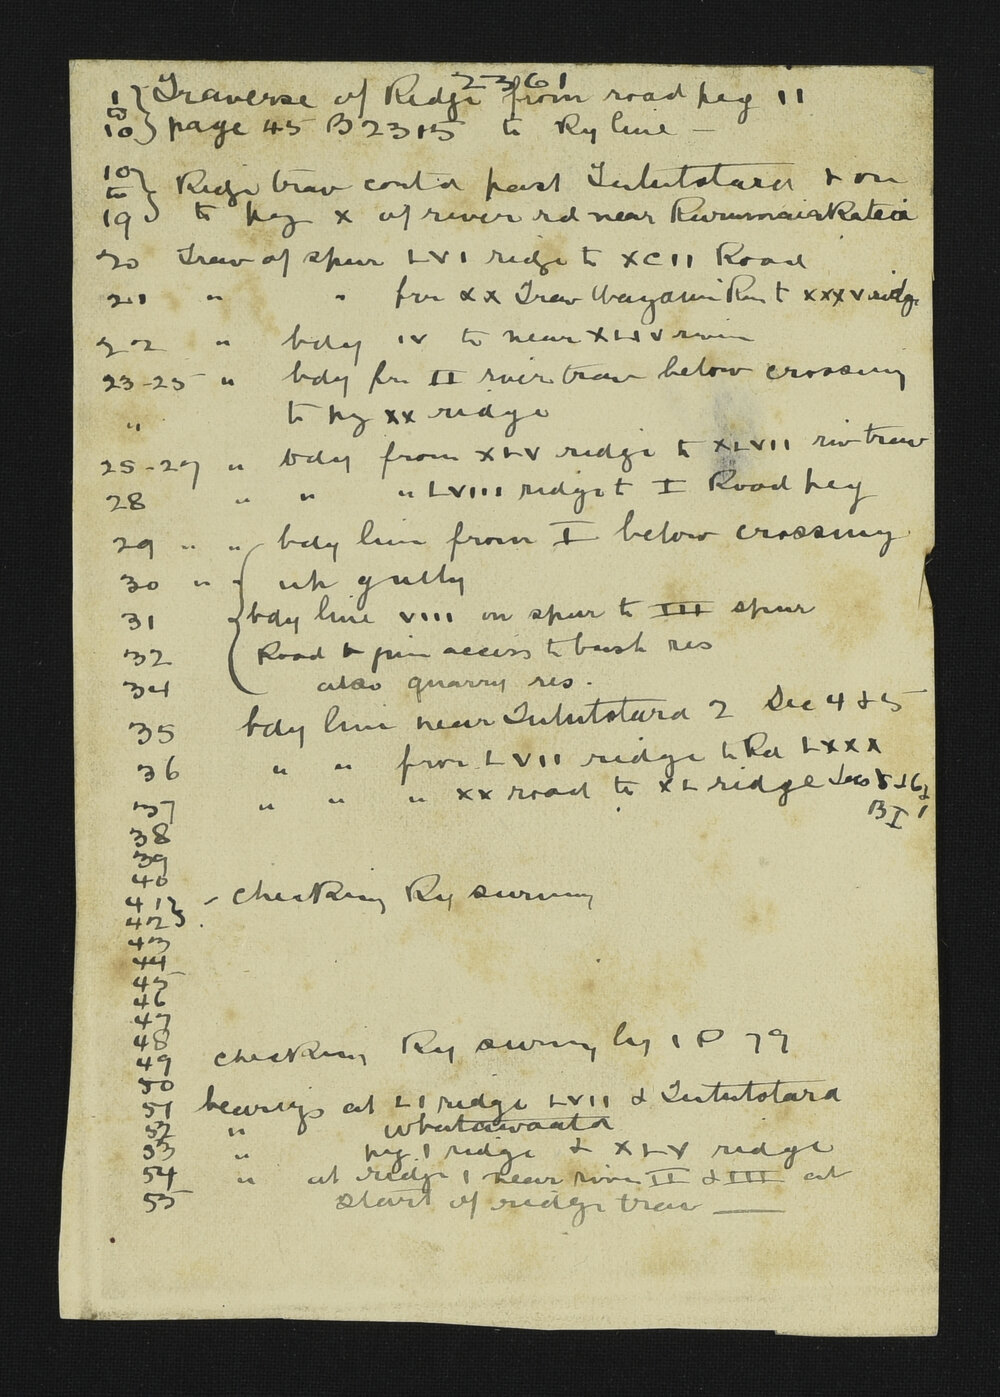 2361
1 } Traverse of Ridge from road peg 11
to
10 } page 45 B 2315 to Ry line —
10 } Ridge trav contd past Tututotara & on
to
19 } to peg X of river rd near
20 Trav of spur LVI ridge to XCII Road
21 " " from XX Trav to XXXV ridge
22 " bdy IV to near river
23-25 " bdy fr II river trav below crossing
" to peg XX ridge
25-27 " bdy from XLV ridge to XLVII riv trav
28 " " " LVIII ridge to I Road peg
29 " " bdy line from I below crossing
30 " up gully
31 bdy line VIII on spur to III spur
32 Road to access to bush res
34 also quarry res.
35 bdy line near Tututotara 2 Sec 4 & 5
36 " " from LVII ridge to Rd LXXX
37 " " " XX road to XL ridge
BI
38
39
40
41 } - checking Ry survey
42 }
43
44
45
46
47
48
49 checking Ry survey by 1 P 79
50
51 bearings at LI ridge LVII & Tututotara
52 "
53 " peg 1 ridge & XLV ridge
54 " at ridge 1 near river II & III at
55 start of ridge trav —